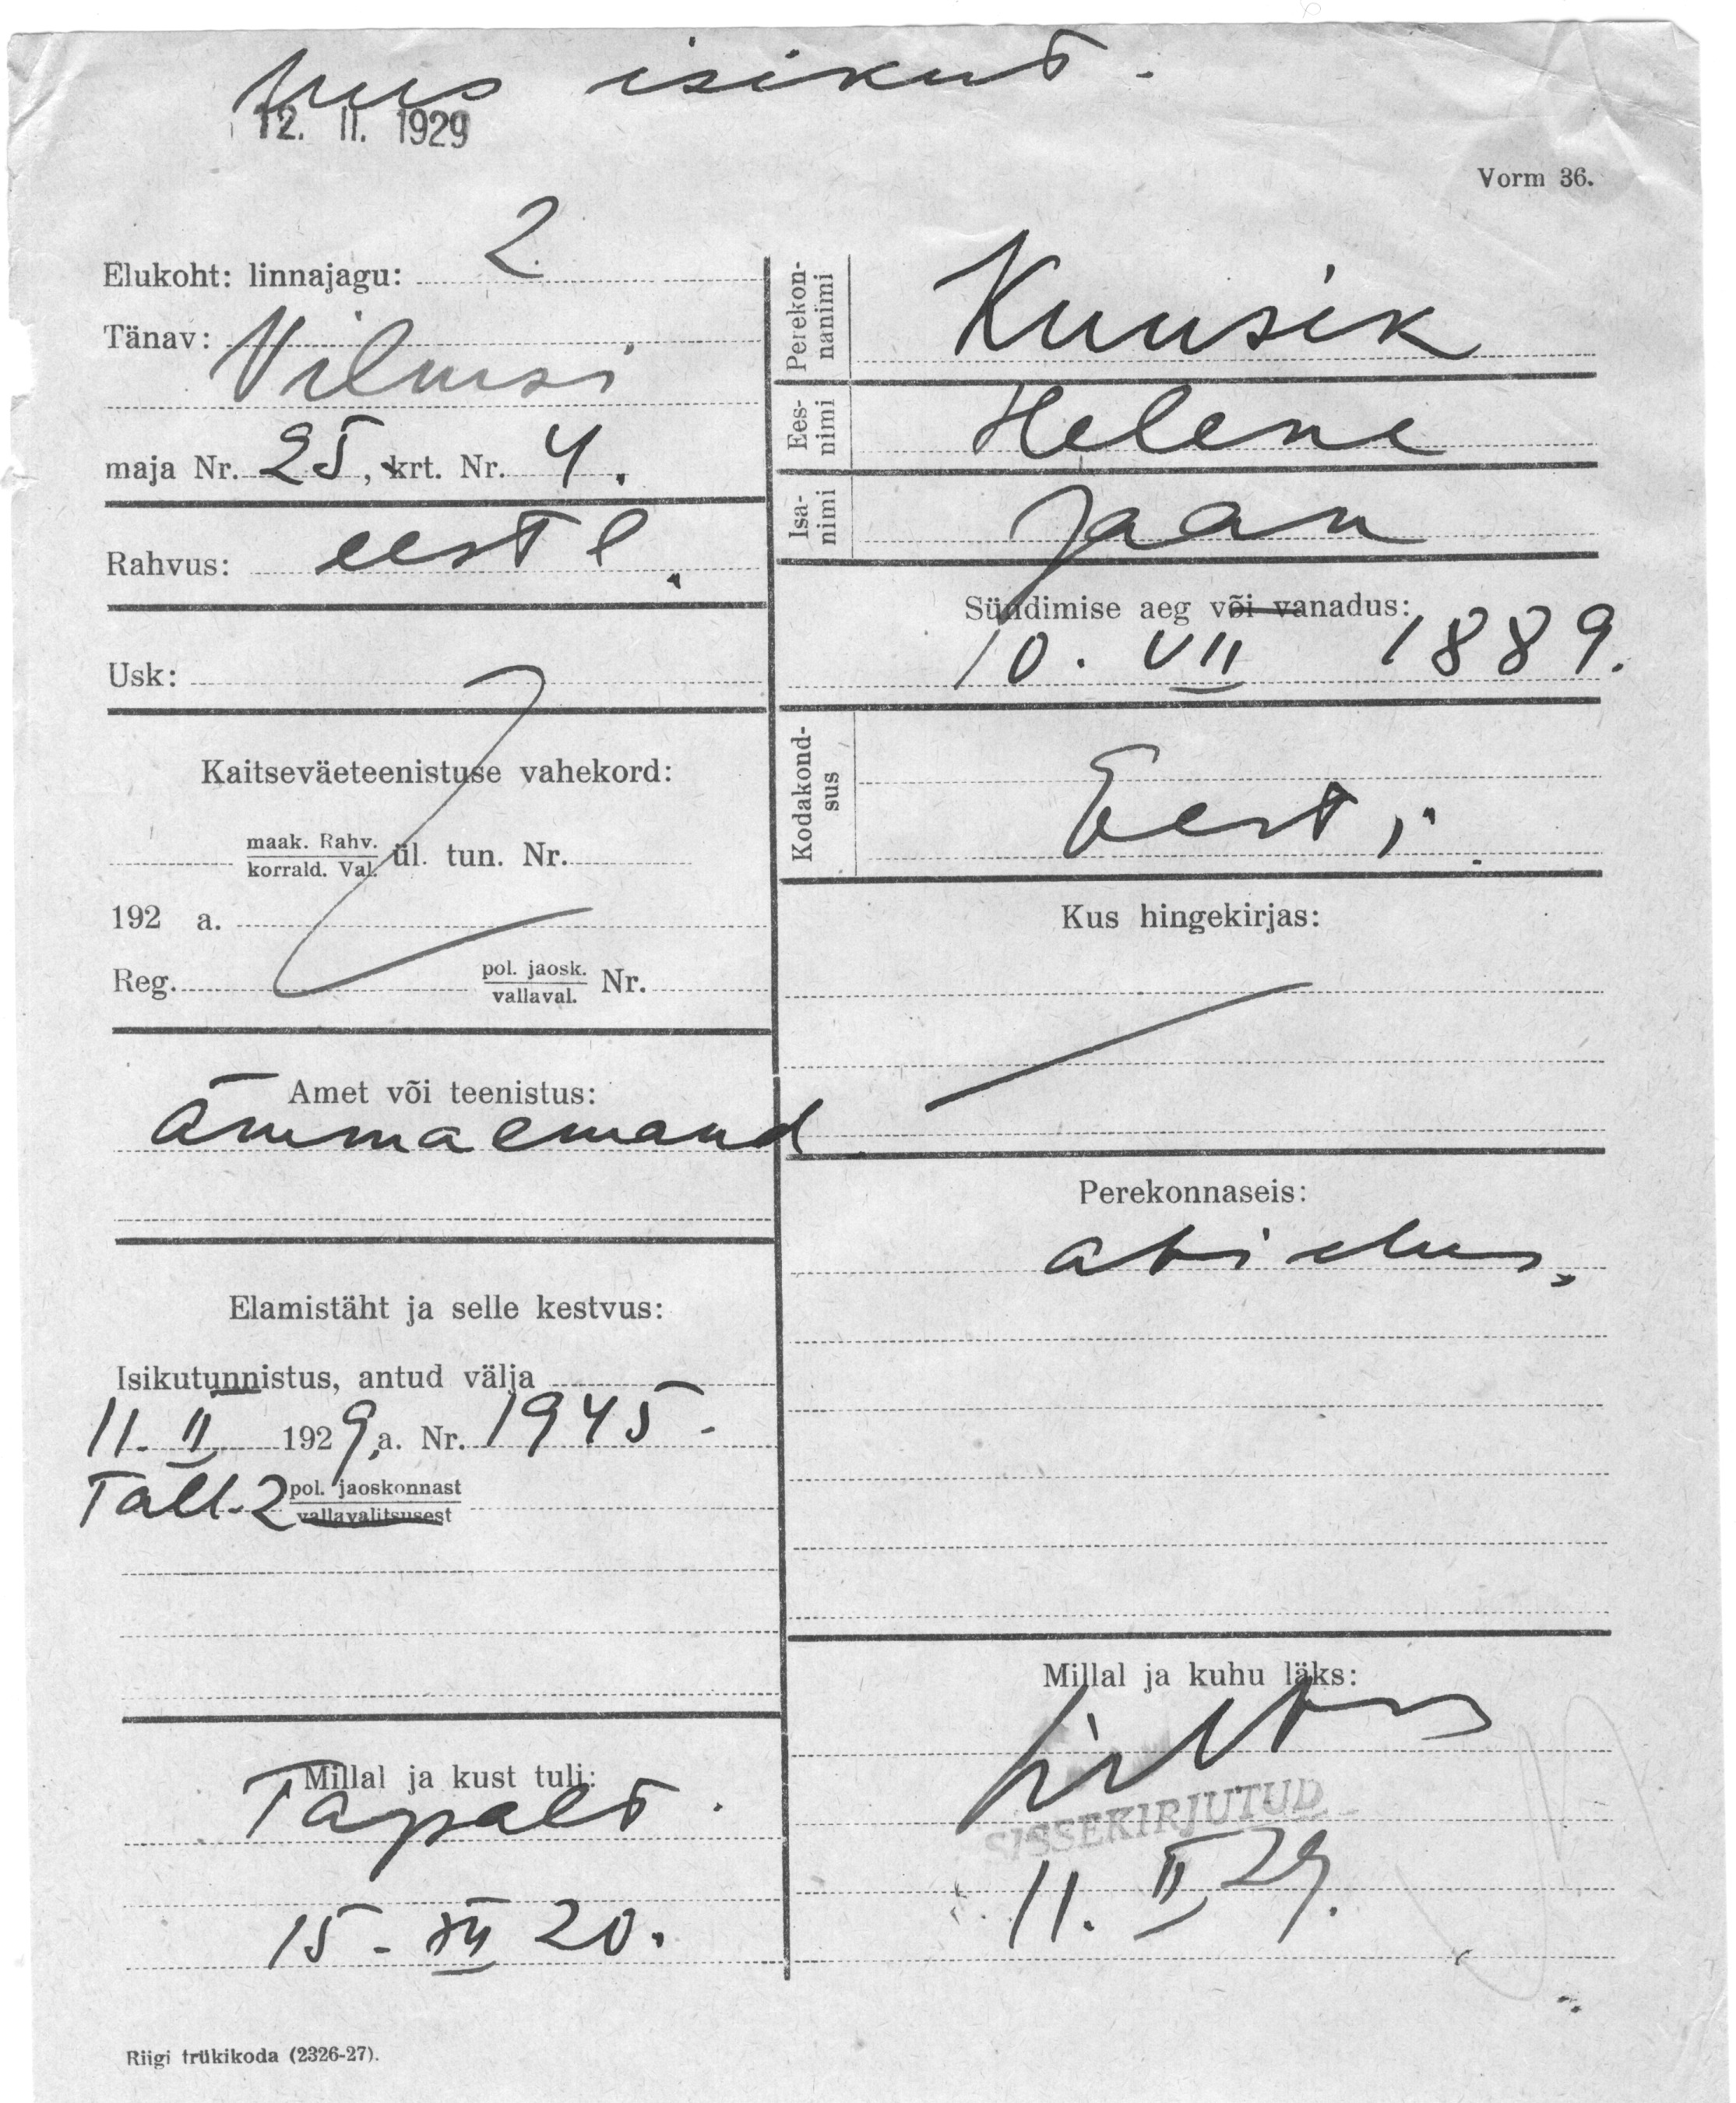 uus isikut.
12. II. 1929
Vorm 36.
Elukoht: linnajagu: 2.
Tänav: Vilmsi
maja Nr. 25, krt. Nr. 4.
Rahvus: eestl.
Usk:
Kaitseväeteenistuse vahekord:
maak. Rahv.
korrald. Val. ül. tun. Nr.
192 a.
Reg. pol. jaosk.
vallaval. Nr.
Amet või teenistus:
Ämmaemand
Elamistäht ja selle kestvus:
Isikutunnistus, antud välja
11. II 1929 a. Nr. 1945.
Tall. 2 pol. jaoskonnast
vallavalitsusest
Millal ja kust tuli:
Tapalt.
15. XII 20.
Riigi trükikoda (2326-27).
Perekon-
nanimi
Kuusik
Ees-
nimi
Helene
Isa-
nimi
Jaan
Sündimise aeg või vanadus:
10. VII 1889.
Kodakond-
sus
Eesti.
Kus hingekirjas:
Perekonnaseis:
abielus.
Millal ja kuhu läks:
SISSEKIRJUTUD
11. II 29.